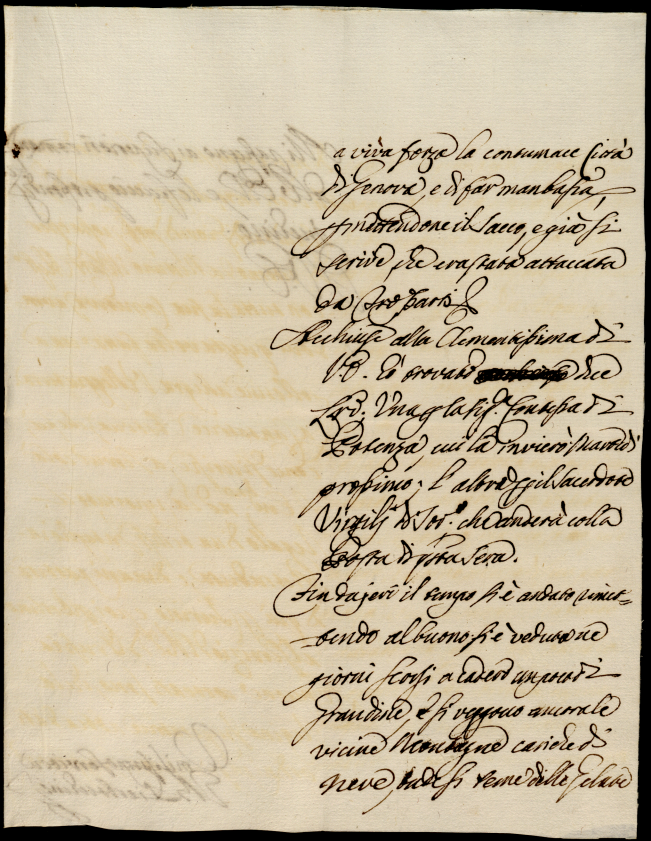 a viva forza la contumace Città
di Genova, e di far manbassa,
permettendone il sacco, e già si
scrive, che era stata attaccata
da tre parti
Acchiuse alla Clementissima di
V.E. hò trovato due
lrẽ. Una p la Sig.ra Contessa di
Potenza, cui la invierò Martedì
prossimo; l'altra p il Sacerdote
Virgilj di Sor.o che anderà colla
Posta di questa sera.
Fin da jeri il tempo si è andato rimet-
tendo al buono; si è veduto ne
giorni scorsi a cadere un poco di
grandine, e si veggono ancora le
vicine Montagne cariche di
neve, onde si teme delle gelate